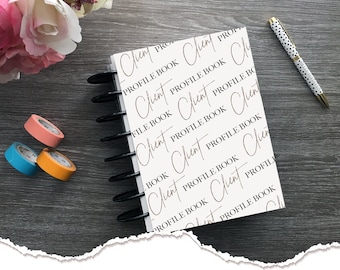 Client PROFILE BOOK
Client PROFILE BOOK Client
PROFILE BOOK Client PROFILE BOOK
Client PROFILE BOOK Client
PROFILE BOOK Client PROFILE BOOK
Client PROFILE BOOK Client
BOOK Client PROFILE BOOK
PROFILE BOOK Client